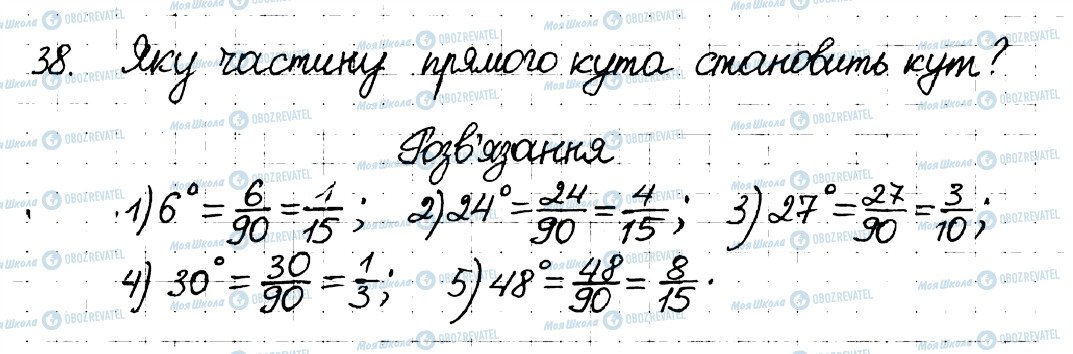 38. Яку частину прямого кута становить кут?
Розв'язання
1) 6° = 6/90 = 1/15; 2) 24° = 24/90 = 4/15; 3) 27° = 27/90 = 3/10;
4) 30° = 30/90 = 1/3; 5) 48° = 48/90 = 8/15.
Моя Школа OBOZREVATEL